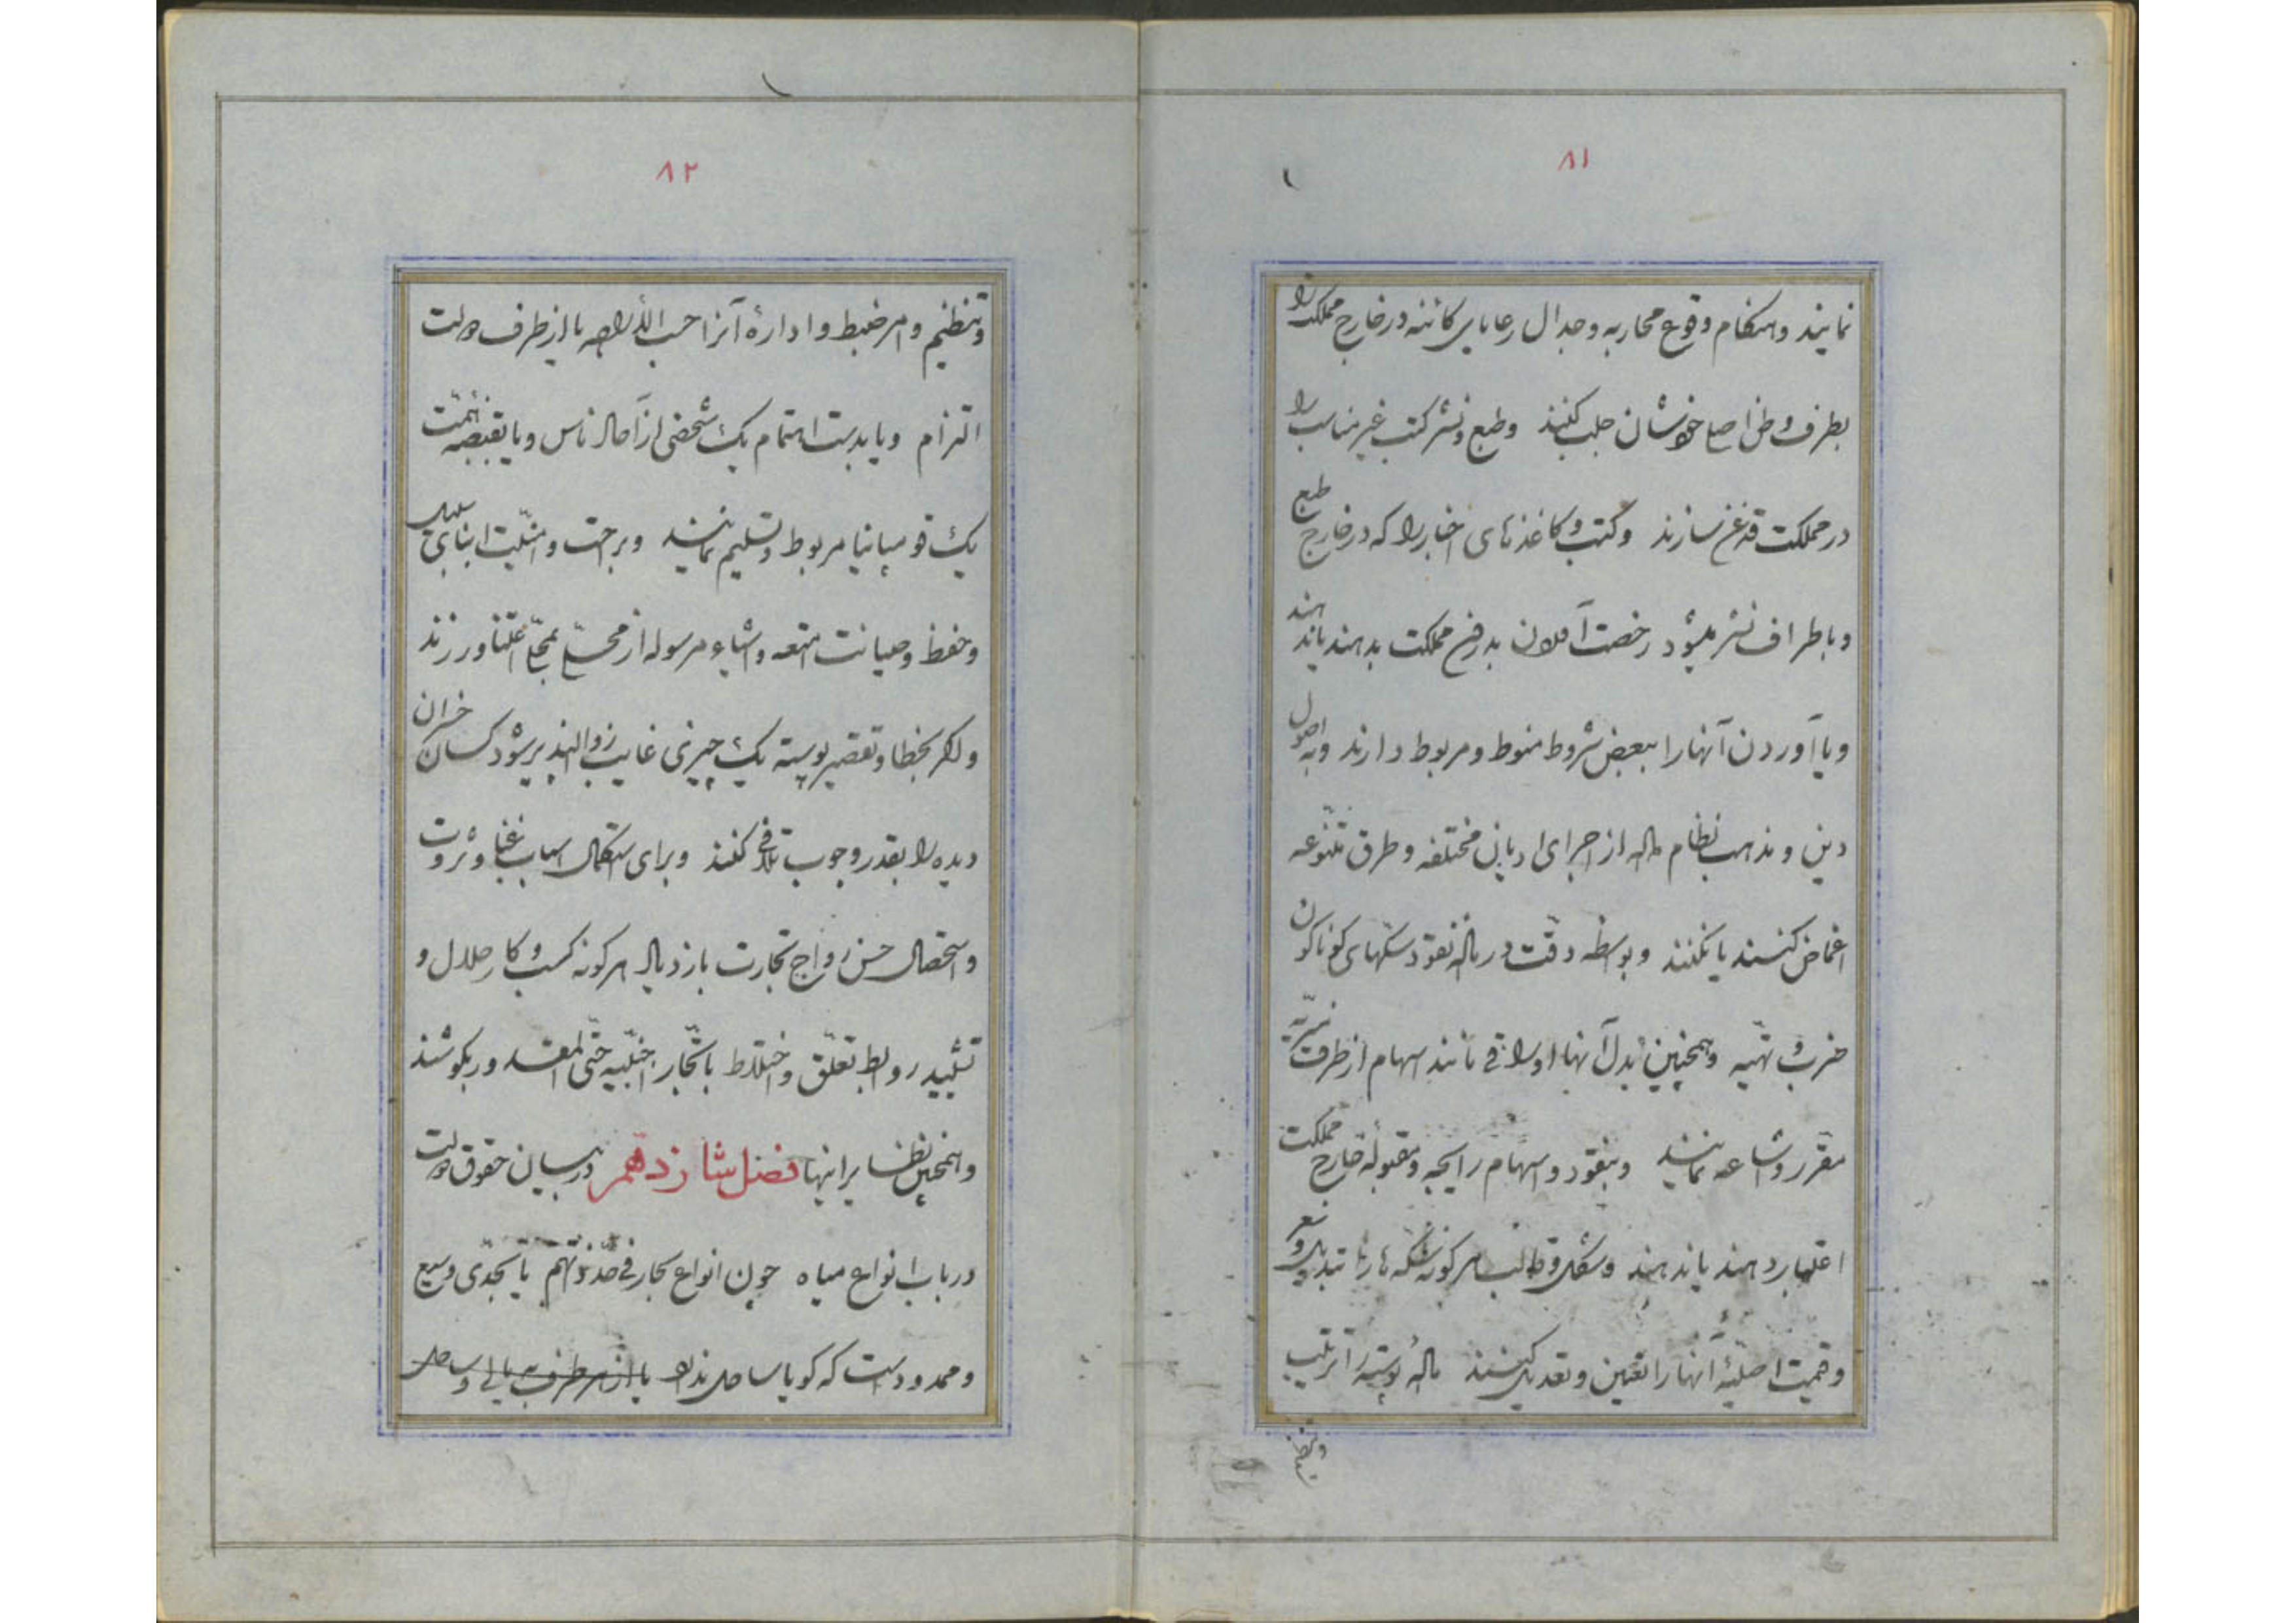 ۸۱
نمایند و هنکام وقوع محاربه و جدال رعایای کائنه در خارج مملکت را
بطرف وطن اصلی خودشان جلب کنند و طبع و نشر کتب غیر مناسب را
در مملکت قدغن سازند و کتب و کاغذهای اخبار را که در خارج طبع
و باطراف نشر میشود رخصت آمدن بدرون مملکت بدهند یا ندهند
و یا آوردن آنها را ببعض شروط منوط و مربوط دارند و به اصول
دین و مذهب نظام داده از اجرای ادیان مختلفه و طرق متنوعه
اغماض کنند یا نکنند و بواسطه دقت در ماده نقود سکهای کوناکون
ضرب و تهیه و همچنین بدل آنها اوراقی مانند اسهام از طرف میریه
مقرر و اشاعه نمایند و بنقود و اسهام رایجه و مقبولهٔ خارج مملکت
اعتبار دهند یا ندهند و شکل و قالب هر کونه سکه ها را تبدیل و تغیر
و قیمت اصلیهٔ آنها را تعیین و تعدیل کنند مادهٔ پوسته را ترتیب
وتنظیم
۸۲
وتنظیم و امر ضبط و ادارهٔ آنرا حسب الاراده یا از طرف دولت
التزام و یا بدست اهتمام یک شخصی از آحاد ناس و یا بقبضه همت
یک قومپانیا مربوط و تسلیم نمایند و براحت و امنیت ابنای سبیل
و حفظ و صیانت امتعه و اشیاء مرسوله از محلی بمحلی اعتنا ورزند
و اکر بخطا و تقصیر پوسته یک چیزی غایب و زوالپذیر شود کسان خسران
دیده را بقدر وجوب تلافی کنند و برای استکمال اسباب غنا و ثروت
و استحصال حسن رواج تجارت بازدیاد هر کونه کسب و کار حلال و
تشیید روابط تعلق و اختلاط با تجار اجنبیه حتی المقدور بکوشند
و همچنین نظایر اینها فصل شانزدهم در بیان حقوق دولت
در باب انواع میاه چون انواع بحار فی حد ذاتهم یا بحدی وسیع
و ممدود است که کویا ساحل ندارد یا از هر طرف به یالی و ساحل